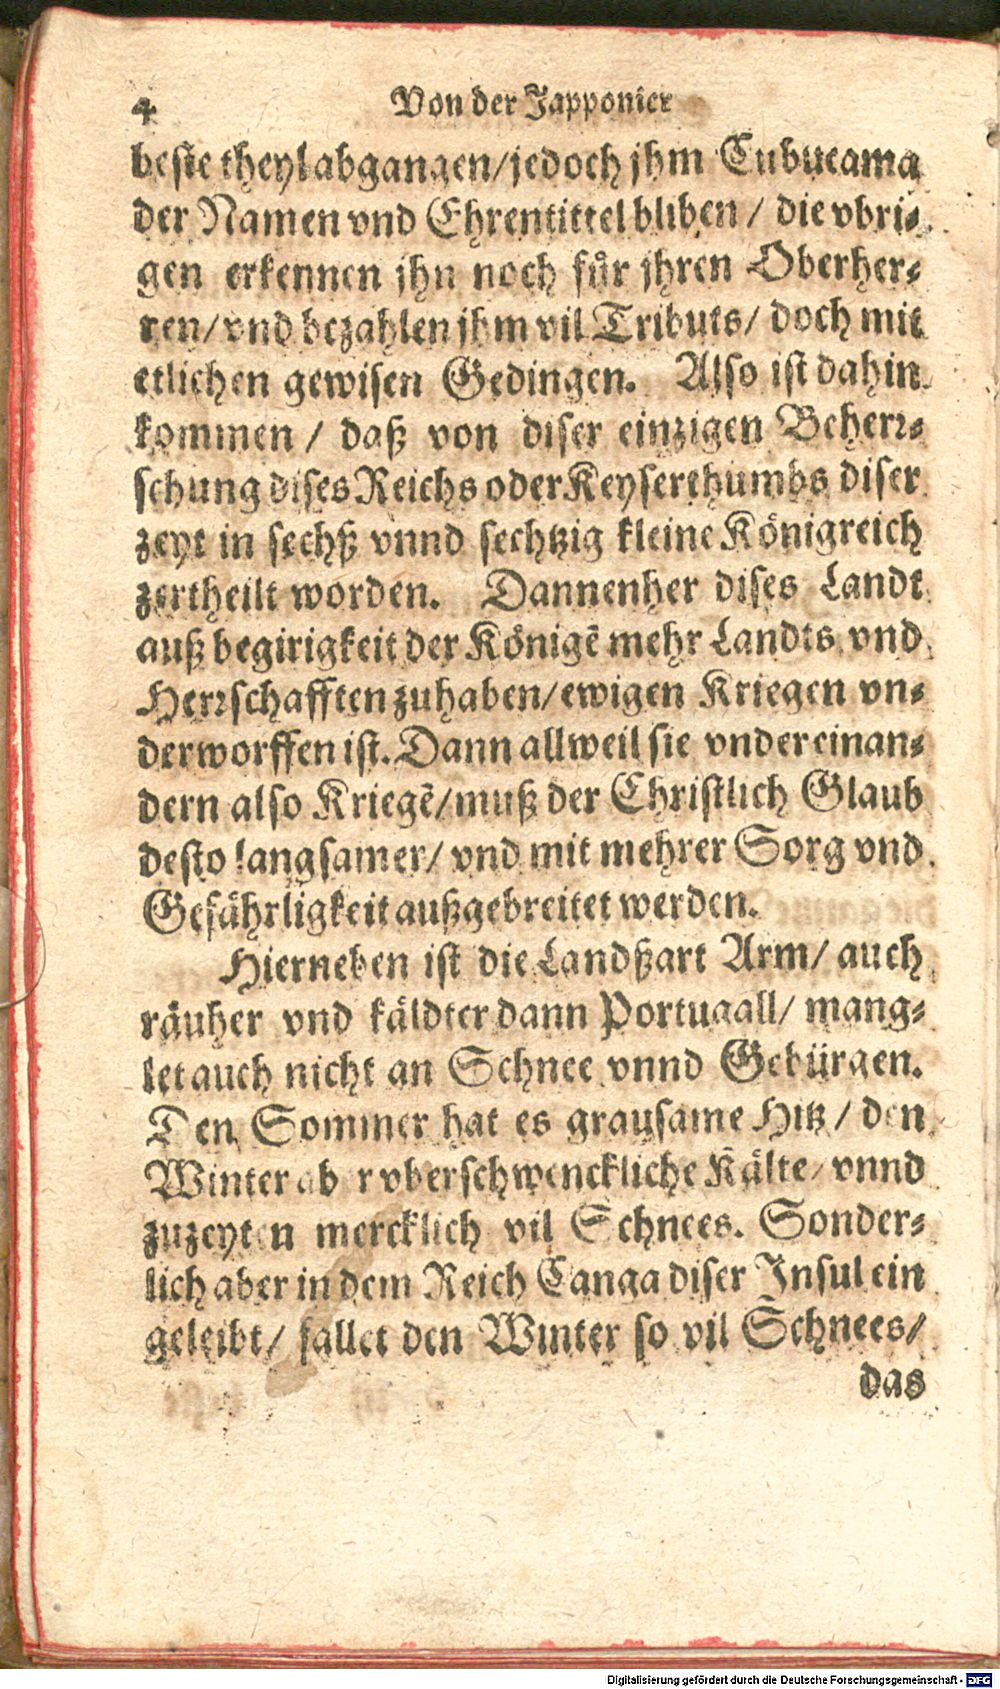 4 Von der Japponier
beste theyl abgangen/ jedoch jhm Cubucama
der Namen vnd Ehrentittel bliben / die vbri-
gen erkennen jhn noch für jhren Oberher-
ren/ vnd bezahlen jhm vil Tributs/ doch mit
etlichen gewisen Gedingen. Also ist dahin
kommen / daß von diser einzigen Beherr-
schung dises Reichs oder Keyserthumbs diser
zeyt in sechß vnnd sechtzig kleine Königreich
zertheilt worden. Dannenher dises Landt
auß begirigkeit der Königẽ mehr Landts vnd
Herrschafften zuhaben/ ewigen Kriegen vn-
derworffen ist. Dann allweil sie vnder einan-
dern also Kriegẽ/ muß der Christlich Glaub
desto langsamer/ vnd mit mehrer Sorg vnd
Gefährligkeit außgebreitet werden.
Hierneben ist die Landßart Arm/ auch
räuher vnd käldter dann Portugall/ mang-
let auch nicht an Schnee vnnd Gebürgen.
Den Sommer hat es grausame Hitz / den
Winter aber vberschwenckliche Kälte/ vnnd
zuzeyten mercklich vil Schnees. Sonder-
lich aber in dem Reich Canga diser Insul ein
geleibt/ fallet den Winter so vil Schnees/
das
Digitalisierung gefördert durch die Deutsche Forschungsgemeinschaft - DFG